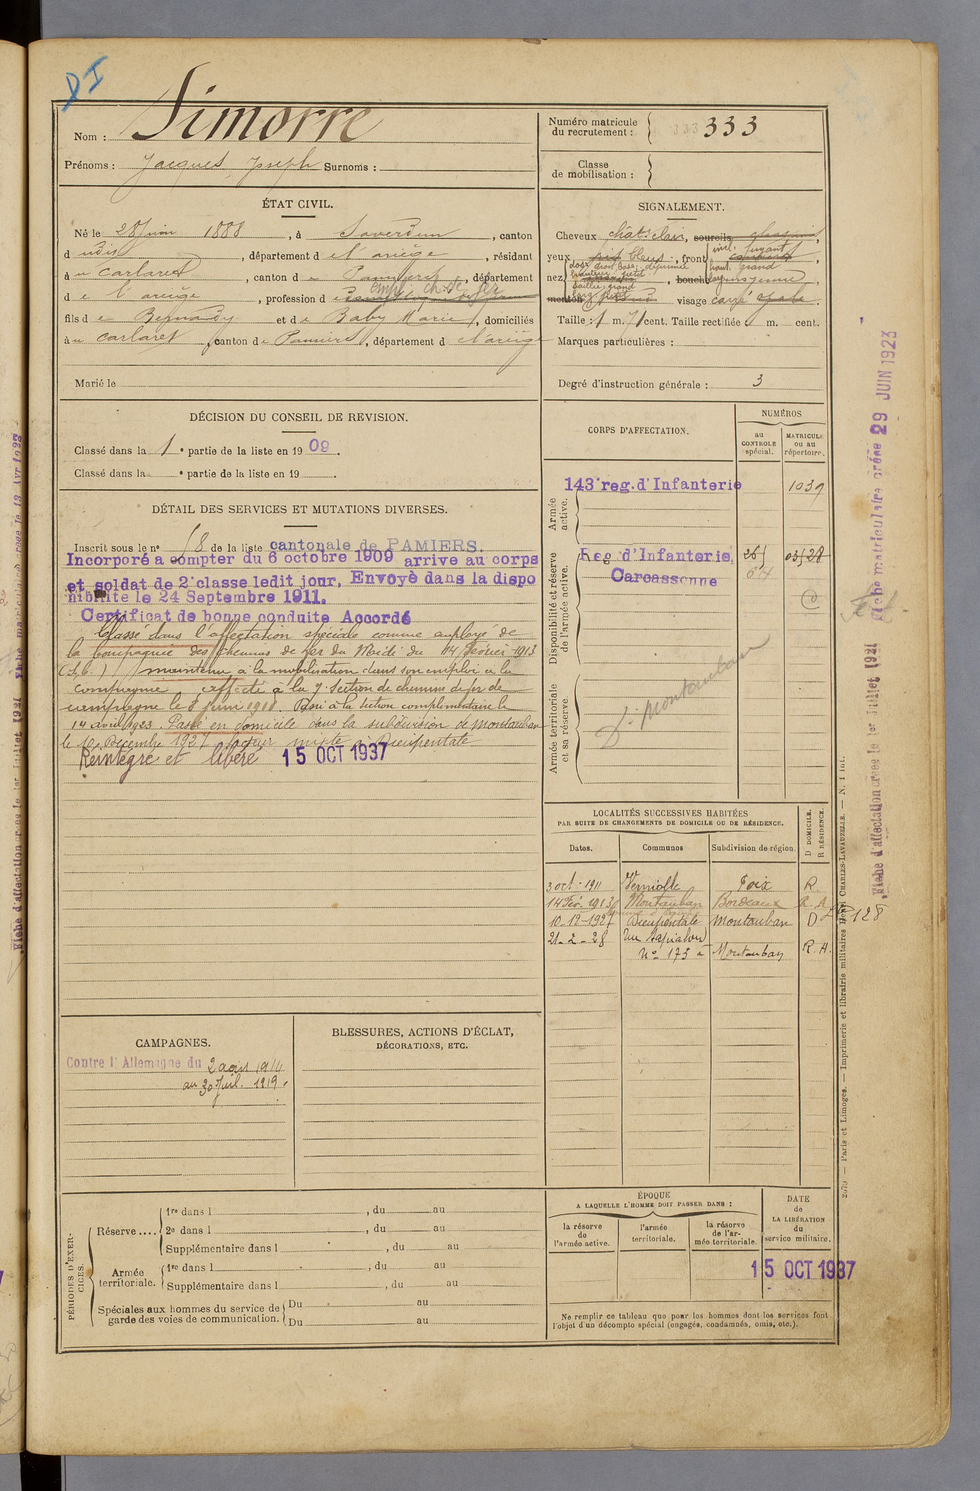 Nom : Simorre
Prénoms : Jacques, Joseph Surnoms :
Numéro matricule du recrutement : 333 333
Classe de mobilisation :
ÉTAT CIVIL.
Né le 28 Juin 1888, à Saverdun, canton
d udit, département de l'ariège, résidant
à u Carlaret, canton de Pamiers, département
d e l'ariège, profession d empl. ch. de fer
fils de Bernardy et de Baby Marie, domiciliés
à u carlaret, canton de Pamiers, département d e l'ariège
Marié le
SIGNALEMENT.
Cheveux chât. clair, sourcils
yeux bleus, front incl. fuyant
haut. grand
nez dos base
menton visage carré
Taille : 1 m. 71 cent. Taille rectifiée : m. cent.
Marques particulières :
Degré d'instruction générale : 3
DÉCISION DU CONSEIL DE REVISION.
Classé dans la 1e partie de la liste en 1909.
Classé dans la e partie de la liste en 19
DÉTAIL DES SERVICES ET MUTATIONS DIVERSES.
Inscrit sous le no 58 de la liste cantonale de PAMIERS.
Incorporé a compter du 6 octobre 1909 arrive au corps
et soldat de 2e classe ledit jour. Envoyé dans la dispo
nibilité le 24 Septembre 1911.
Certificat de bonne conduite Accordé
Classé dans l'affectation spéciale comme employé de
la Compagnie des chemins de fer du Midi du 14 février 1913
(S.C.) maintenu à la mobilisation dans son emploi à la
compagnie affecté à la 7e Section de chemins de fer de
campagne le 8 juin 1918. Passé à la Section complémentaire le
14 avril 1923. Passé en domicile dans la subdivision de Montauban
le 10 Décembre 1927 facteur mixte à Dieupentale
Réintégré et libéré 15 OCT 1937
CORPS D'AFFECTATION.
NUMÉROS
au CONTROLE spécial.
MATRICULE ou au répertoire.
Armée active.
143e reg. d'Infanterie 1039
Disponibilité et réserve de l'armée active.
Reg d'Infanterie,
Carcassonne
Armée territoriale et sa réserve
Dt Montauban
LOCALITÉS SUCCESSIVES HABITÉES
PAR SUITE DE CHANGEMENTS DE DOMICILE OU DE RÉSIDENCE.
Dates. Communes Subdivision de région. D DOMICILE. R RÉSIDENCE.
3 oct. 1911 Verniolle Foix R
14 Fév. 1913 Montauban Bordeaux R. A
10-12-1927 Dieupentale Montauban D
21-2-28 rue Lapialou
No 175 à Montauban R. A.
CAMPAGNES.
Contre l'Allemagne du 2 août 1914
au 30 Juil. 1919.
BLESSURES, ACTIONS D'ÉCLAT,
DÉCORATIONS, ETC.
PÉRIODES D'EXERCICES.
Réserve ....
1re dans l , du au
2e dans l , du au
Supplémentaire dans l , du au
Armée territoriale.
1re dans l , du au
Supplémentaire dans l , du au
Spéciales aux hommes du service de garde des voies de communication.
Du au
Du au
ÉPOQUE
A LAQUELLE L'HOMME DOIT PASSER DANS :
la réserve de l'armée active.
l'armée territoriale.
la réserve de l'armée territoriale.
DATE DE LA LIBÉRATION du service militaire.
15 OCT 1937
Ne remplir ce tableau que pour les hommes dont les services font
l'objet d'un décompte spécial (engagés, condamnés, omis, etc.).
Paris et Limoges. — Imprimerie et librairie militaires Henri CHARLES-LAVAUZELLE. — N. 1 int.
Fiche d'affectation créée le 1er Juillet 1921
Fiche matriculaire créée 29 JUIN 1923